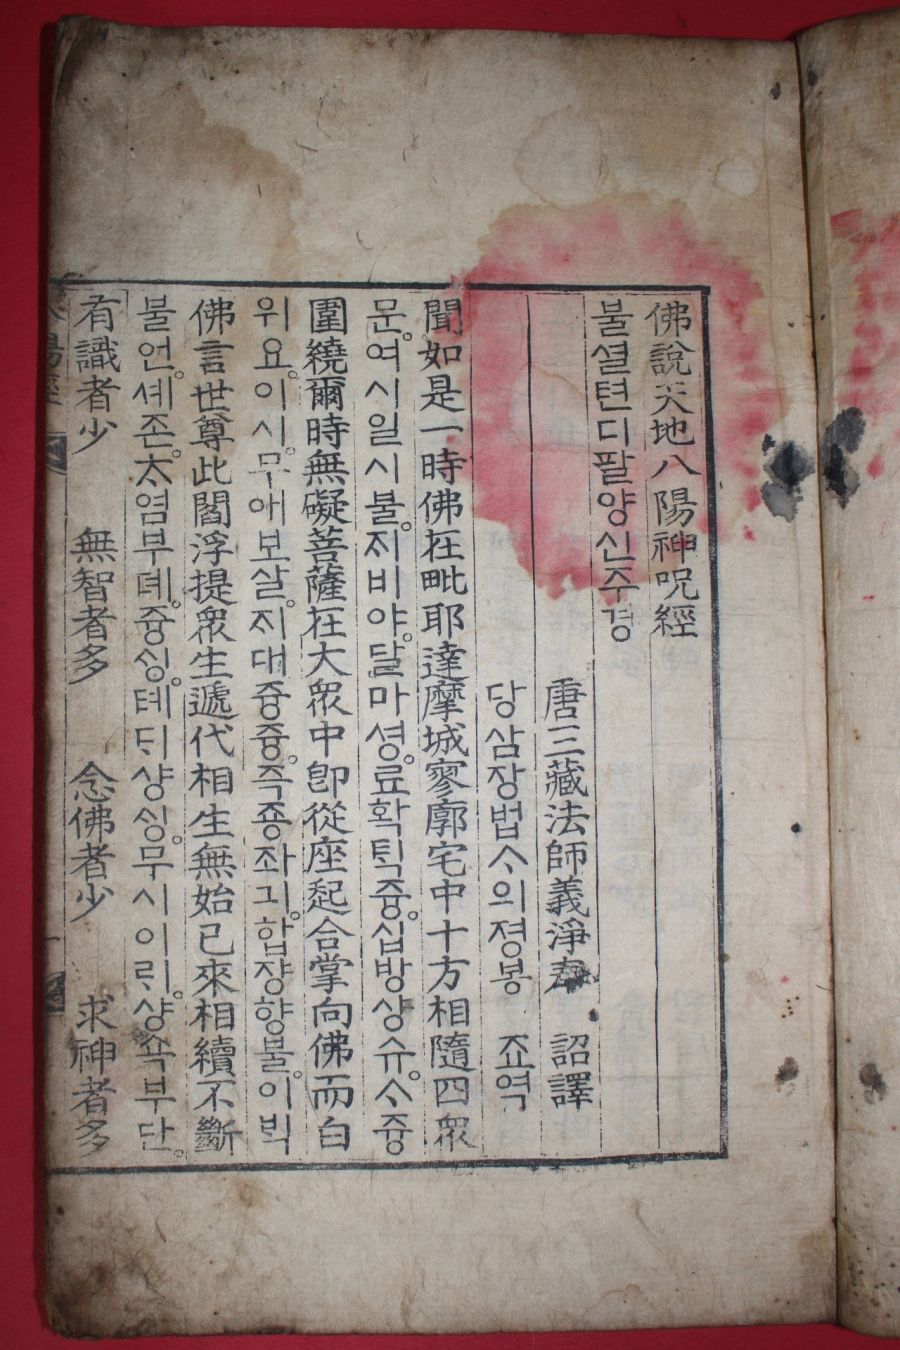 佛說天地八陽神呪經
불셜텬디팔양신쥬경
唐三藏法師義淨奉 詔譯
당삼장법ᄉ의졍봉 죠역
聞如是一時佛在毗耶達摩城寥廓宅中十方相隨四衆
문。여시일시불。ᄌᆡ비야。달마셩。료확ᄐᆡᆨ즁。십방상슈。ᄉ즁
圍繞爾時無礙菩薩在大衆中卽從座起合掌向佛而白
위요。이시。무애보살。ᄌᆡ대즁즁。즉죵좌긔。합쟝향불。이ᄇᆡᆨ
佛言世尊此閻浮提衆生遞代相生無始已來相續不斷
불언。셰존。ᄎᆞ염부뎨。즁ᄉᆡᆼ。톄ᄃᆡ샹ᄉᆡᆼ。무시이ᄅᆡ。샹쇽부단。
有識者少 無智者多 念佛者少 求神者多